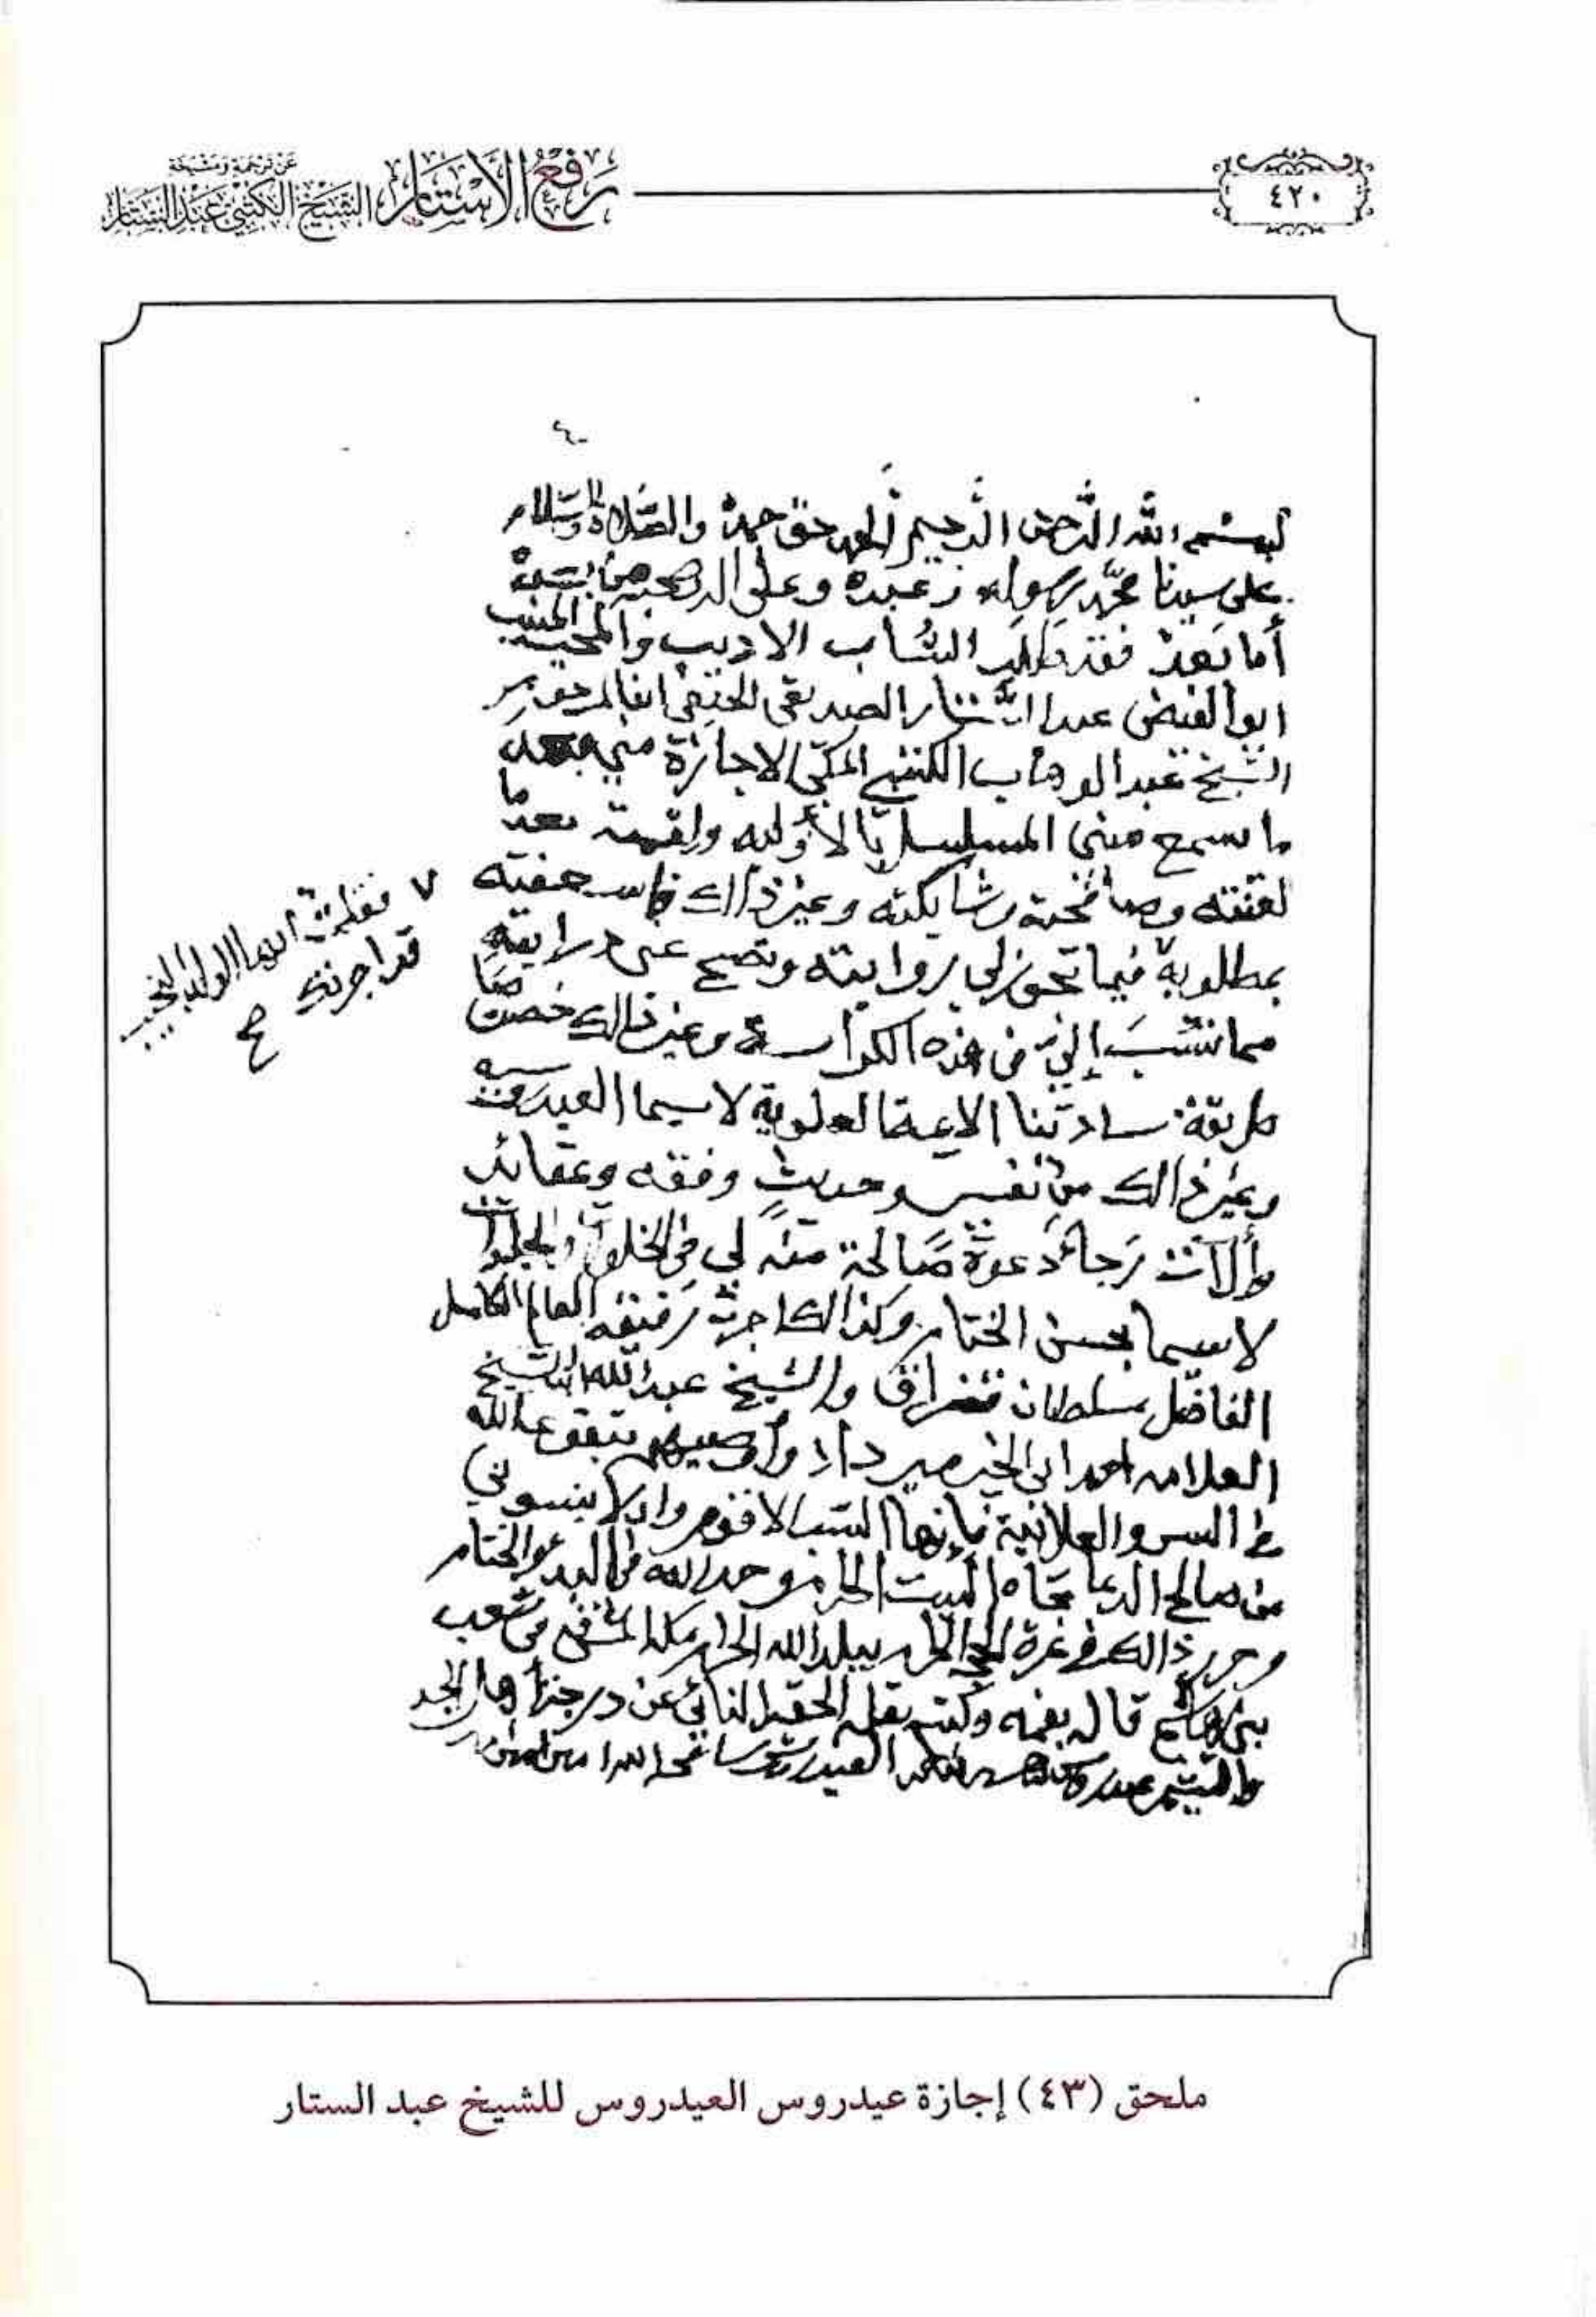 ٤٢٠
رفع الأستار عن ترجمة ومشيخة الشيخ الكتبي عبد الستار
٤٠
بسم الله الرحمن الرحيم الحمد حق حمده والصلاة والسلام
على سيدنا محمد رسوله وعبده وعلى اله وصحبه من بعده
أما بعد فقد طلب الشاب الاديب والمحب المنيب
ابو الفيض عبد الستار الصديقي الحنفي ابن المرحوم
الشيخ عبد الوهاب الكتبي المكي الاجازة مني بعد
ما سمع مني المسلسل بالأولية والقمته بعد ما
لقنته وصافحته وشابكته وغير ذالك فاسعفته
بمطلوبه فيما تجوز لي روايته وتصح عني درايته
٧ فقلت ايها الولد النجيب
قد اجزتك صح
مما نسب إلي في هذه الكراسة وغير ذالك خصوصا
طريقة سادتنا الايمة العلوية لاسيما العيدروسيه
وغير ذالك من تفسير وحديث وفقه وعقائد
وألآت رجاء دعوة صالحة منه لي في الخلوات والجلوات
لاسيما بحسن الختام وكذالك اجزت رفيقه العالم الكامل
الفاضل سلطان والشيخ عبد الله ابن الشيخ
العلامه احمد ابي الخير ميرداد وأوصيهم بتقوى الله
في السر والعلانية فإنها السبب الاقوم وان لا ينسوني
من صالح الدعا تجاه البيت الحرام وحمد الله في البدء والختام
وحرر ذالك في غرة الحجة الحرام ببلد الله الحرام مكة المشرفه في شعب
بني هاشم قال بفمه وكتبه بقلمه الحقير النائي عن درجة أهل المجد
عيدروس العيدروس سامحه الله امين امين
ملحق (٤٣) إجازة عيدروس العيدروس للشيخ عبد الستار